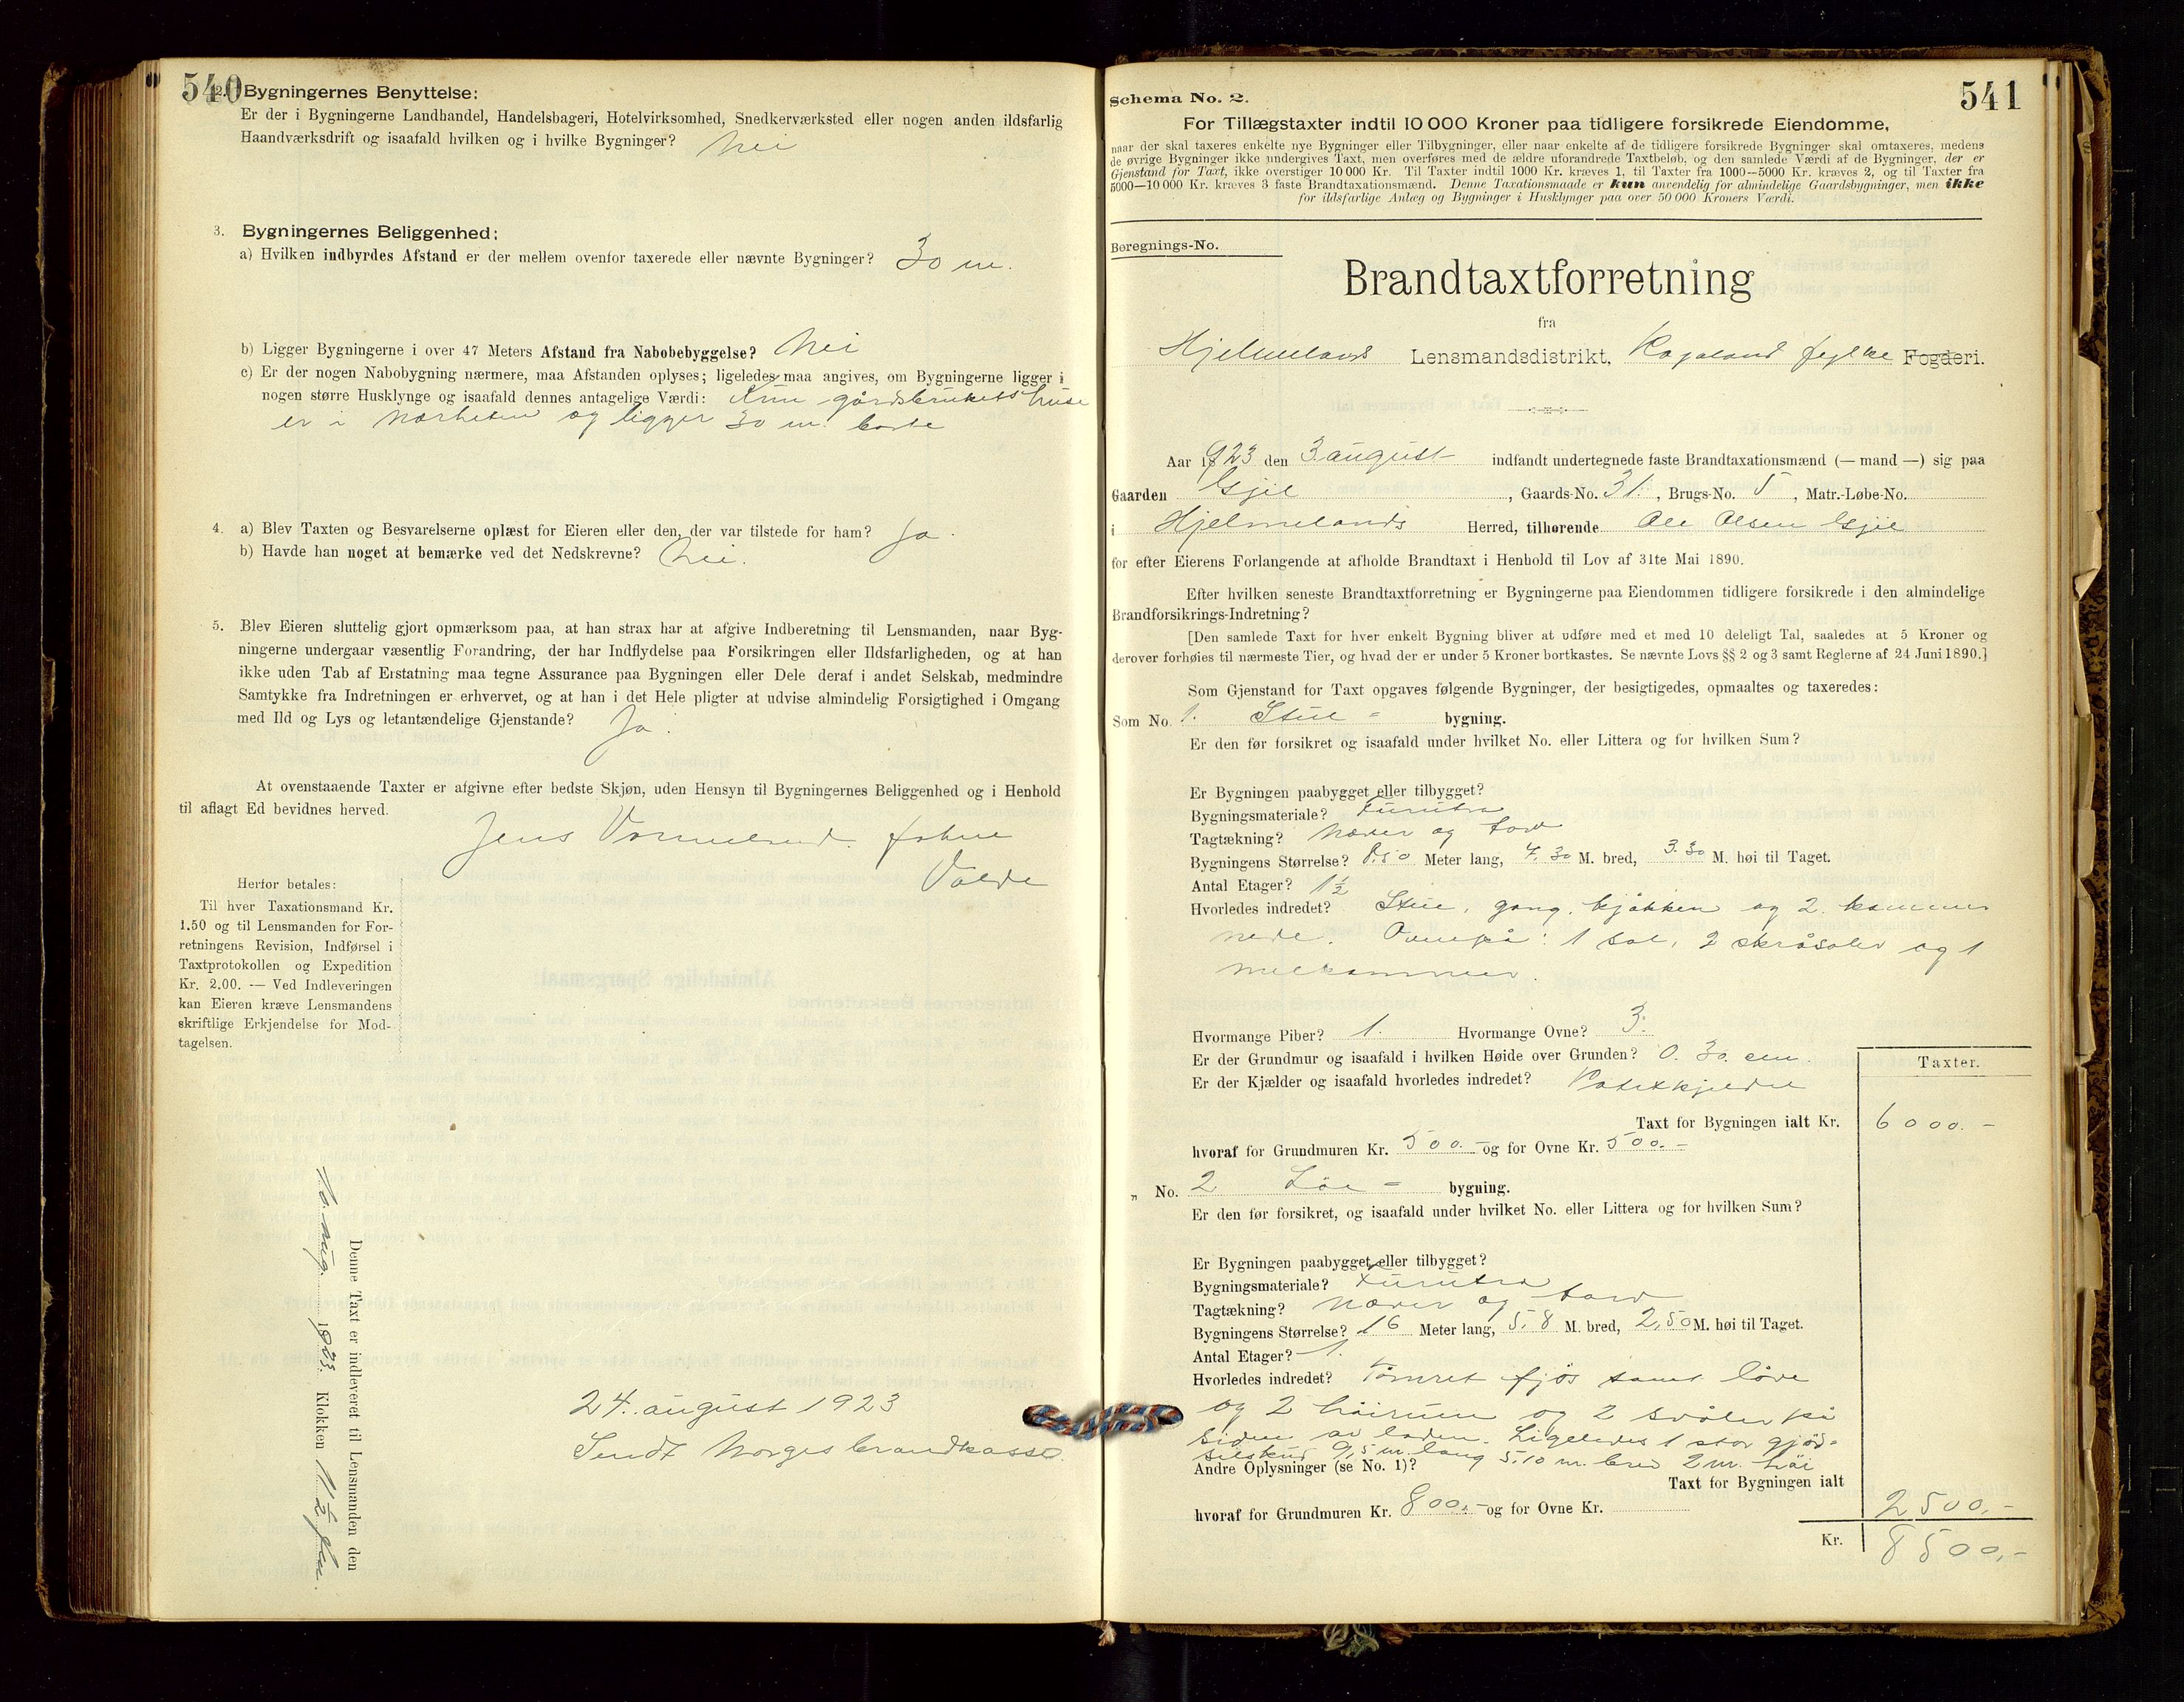 540
2. Bygningernes Benyttelse:
Er der i Bygningerne Landhandel, Handelsbageri, Hotelvirksomhed, Snedkerværksted eller nogen anden ildsfarlig
Haandværksdrift og isaafald hvilken og i hvilke Bygninger? Nei
3. Bygningernes Beliggenhed:
a) Hvilken indbyrdes Afstand er der mellem ovenfor taxerede eller nævnte Bygninger? 30 m.
b) Ligger Bygningerne i over 47 Meters Afstand fra Nabobebyggelse? Nei
c) Er der nogen Nabobygning nærmere, maa Afstanden oplyses; ligeledes maa angives, om Bygningerne ligger i
nogen større Husklynge og isaafald dennes antagelige Værdi: Kun gårdsbrukets huse
er i nærheten og ligger 30 m. borte
4. a) Blev Taxten og Besvarelserne oplæst for Eieren eller den, der var tilstede for ham? Ja.
b) Havde han noget at bemærke ved det Nedskrevne? Nei.
5. Blev Eieren sluttelig gjort opmærksom paa, at han strax har at afgive Indberetning til Lensmanden, naar Byg-
ningerne undergaar væsentlig Forandring, der har Indflydelse paa Forsikringen eller Ildsfarligheden, og at han
ikke uden Tab af Erstatning maa tegne Assurance paa Bygningen eller Dele deraf i andet Selskab, medmindre
Samtykke fra Indretningen er erhvervet, og at han i det Hele pligter at udvise almindelig Forsigtighed i Omgang
med Ild og Lys og letantændelige Gjenstande? Ja.
At ovenstaaende Taxter er afgivne efter bedste Skjøn, uden Hensyn til Bygningernes Beliggenhed og i Henhold
til aflagt Ed bevidnes herved.
Jens
Herfor betales:
Til hver Taxationsmand Kr.
1.50 og til Lensmanden for For-
retningens Revision, Indførsel i
Taxtprotokollen og Expedition
Kr. 2.00. — Ved Indleveringen
kan Eieren kræve Lensmandens
skriftlige Erkjendelse for Mod-
tagelsen.
Denne Taxt er indleveret til Lensmanden den
10. aug. 1923. Klokken 11½ fm.
24. august 1923
Sendt Norges brandkasse.
541
Schema No. 2.
For Tillægstaxter indtil 10 000 Kroner paa tidligere forsikrede Eiendomme,
naar der skal taxeres enkelte nye Bygninger eller Tilbygninger, eller naar enkelte af de tidligere forsikrede Bygninger skal omtaxeres, medens
de øvrige Bygninger ikke undergives Taxt, men overføres med de ældre uforandrede Taxtbeløb, og den samlede Værdi af de Bygninger, der er
Gjenstand for Taxt, ikke overstiger 10 000 Kr. Til Taxter indtil 1000 Kr. kræves 1, til Taxter fra 1000—5000 Kr. kræves 2, og til Taxter fra
5000—10 000 Kr. kræves 3 faste Brandtaxationsmænd. Denne Taxationsmaade er kun anvendelig for almindelige Gaardsbygninger, men ikke
for ildsfarlige Anlæg og Bygninger i Husklynger paa over 50 000 Kroners Værdi.
Beregnings-No.
Brandtaxtforretning
fra
Hjelmelands Lensmandsdistrikt, Rogaland fylke Fogderi.
Aar 1923 den 3 august indfandt undertegnede faste Brandtaxationsmænd (— mand —) sig paa
Gaarden Gjil, Gaards-No. 31., Brugs-No. 5, Matr.-Løbe-No.
i Hjelmelands Herred, tilhørende Ole Olsen Gjil
for efter Eierens Forlangende at afholde Brandtaxt i Henhold til Lov af 31te Mai 1890.
Efter hvilken seneste Brandtaxtforretning er Bygningerne paa Eiendommen tidligere forsikrede i den almindelige
Brandforsikrings-Indretning?
[Den samlede Taxt for hver enkelt Bygning bliver at udføre med et med 10 deleligt Tal, saaledes at 5 Kroner og
derover forhøies til nærmeste Tier, og hvad der er under 5 Kroner bortkastes. Se nævnte Lovs §§ 2 og 3 samt Reglerne af 24 Juni 1890.]
Som Gjenstand for Taxt opgaves følgende Bygninger, der besigtigedes, opmaaltes og taxeredes:
Som No. 1. Stue- bygning.
Er den før forsikret og isaafald under hvilket No. eller Littera og for hvilken Sum?
Er Bygningen paabygget eller tilbygget?
Bygningsmateriale? Furutræ
Tagtækning? Næver og torv
Bygningens Størrelse? 8.50 Meter lang, 7.30 M. bred, 3.30 M. høi til Taget.
Antal Etager? 1½
Hvorledes indredet? Stue, gang, kjøkken og 2 kammer
nede. Ovenpå: 1 sal, 2 skråsaler og 1
melkammer.
Hvormange Piber? 1. Hvormange Ovne? 3.
Er der Grundmur og isaafald i hvilken Høide over Grunden? 0.30. cm.
Er der Kjælder og isaafald hvorledes indredet? Potetkjelder
Taxter.
Taxt for Bygningen ialt Kr. 6000.-
hvoraf for Grundmuren Kr. 500.- og for Ovne Kr. 500.-
„ No. 2 Löe- bygning.
Er den før forsikret, og isaafald under hvilket No. eller Littera og for hvilken Sum?
Er Bygningen paabygget eller tilbygget?
Bygningsmateriale? Furutræ
Tagtækning? Næver og torv
Bygningens Størrelse? 16 Meter lang, 5.8 M. bred, 2,50 M. høi til Taget.
Antal Etager? 1.
Hvorledes indredet? Tømret fjøs samt løve
og 2 høirum og 2 svåler på
siden av laden. Ligeledes 1 stor gjød-
selskur 9,5 m. lang 5.10 m. bred 2 m. høi
Andre Oplysninger (se No. 1)?
Taxt for Bygningen ialt 2500,-
hvoraf for Grundmuren Kr. 800.- og for Ovne Kr.
Kr. 8500,-